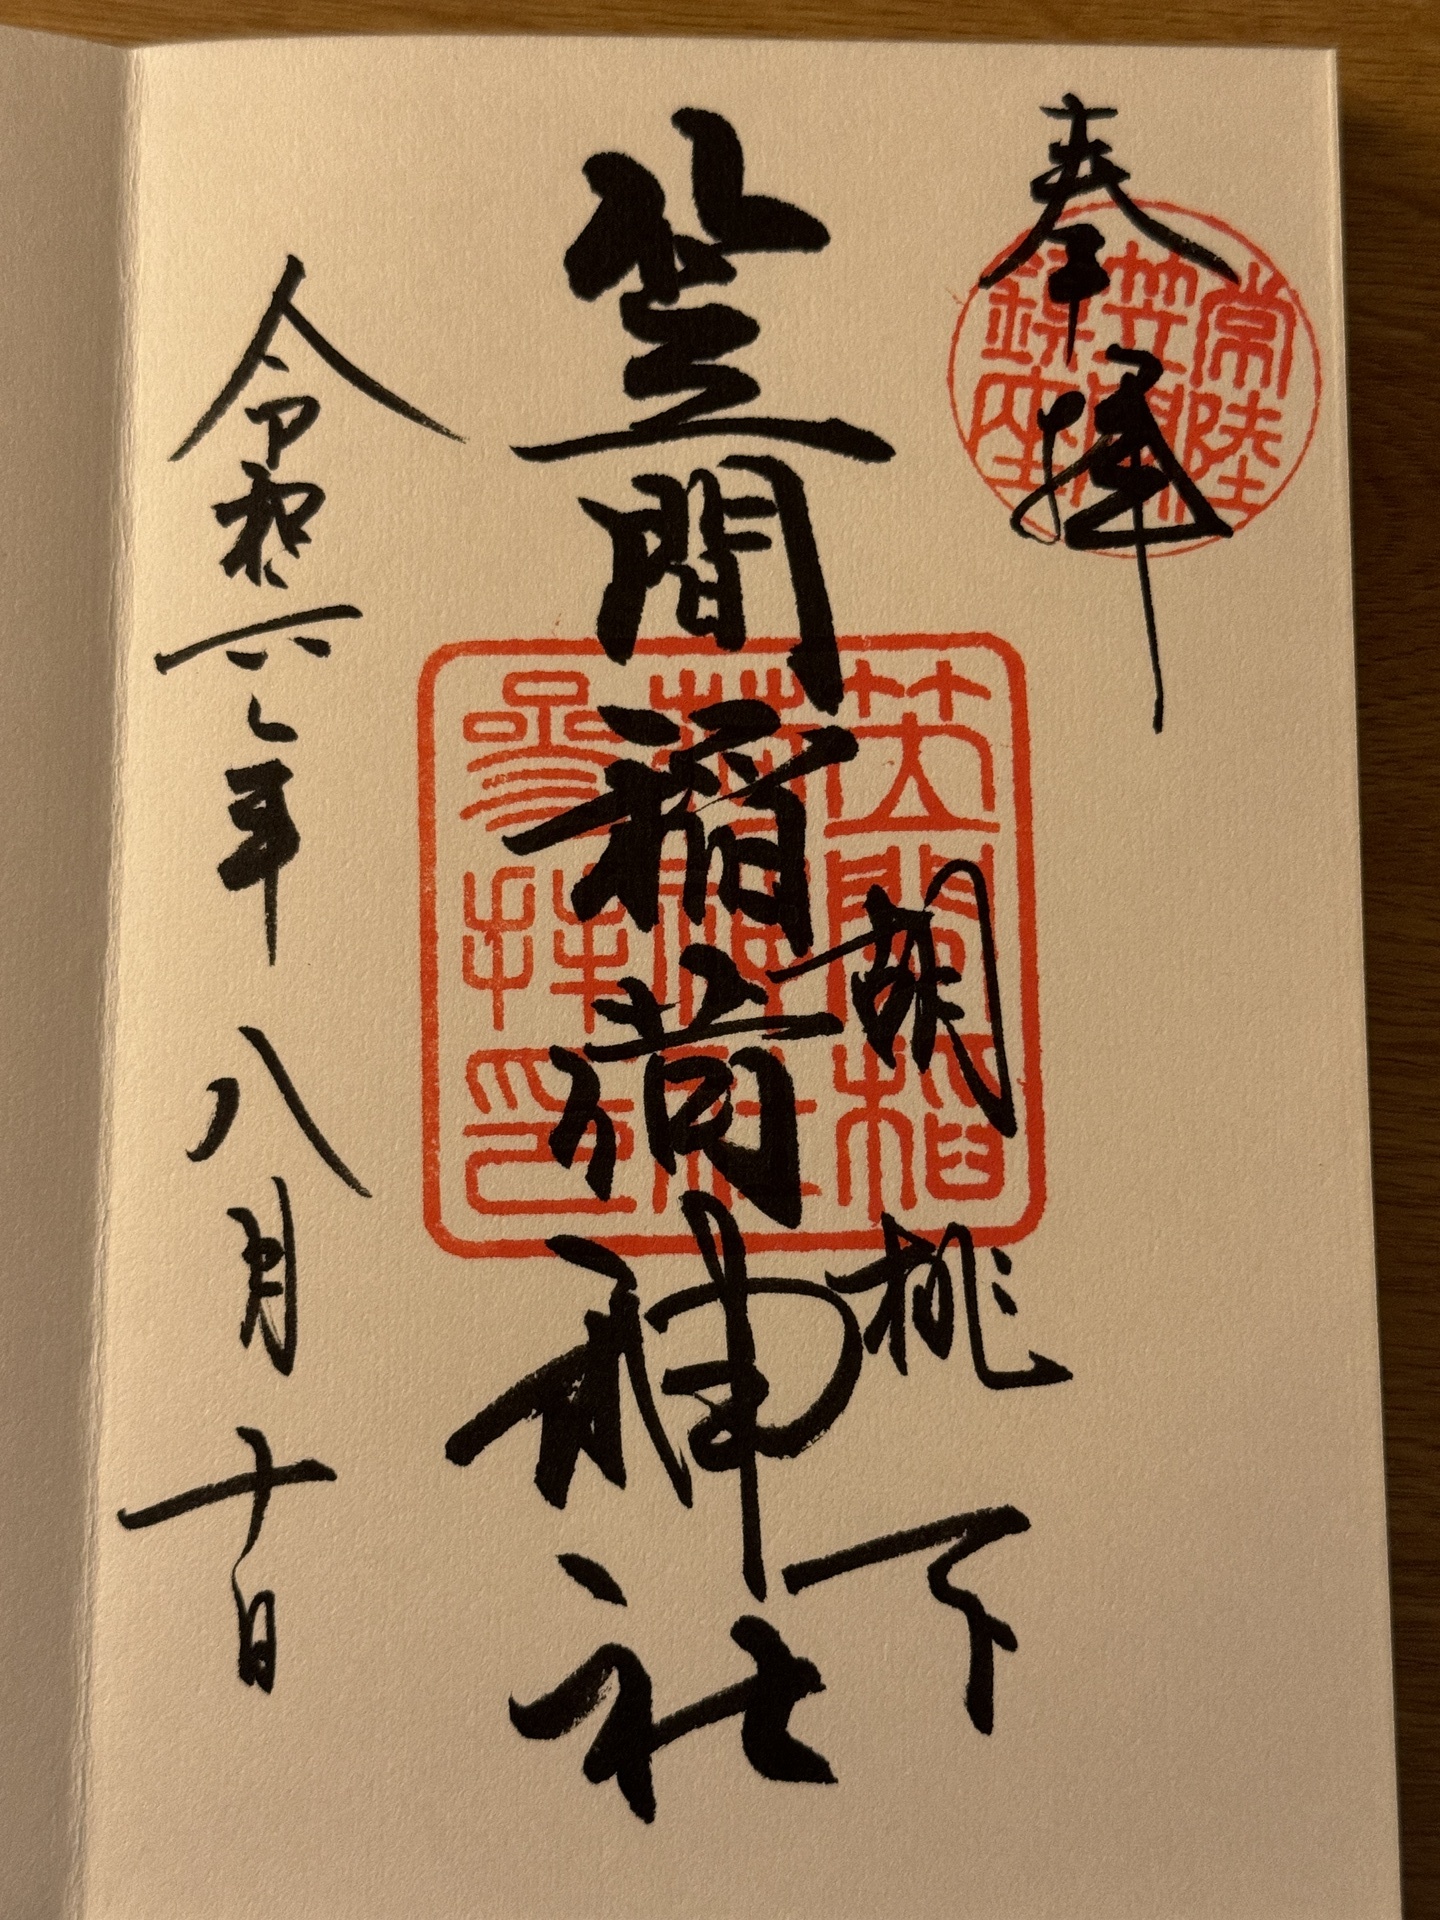 奉拝
常陸
笠間
鎮座
胡桃下
笠間稲荷神社
笠間稲
荷神社
参拝印
令和六年八月十日